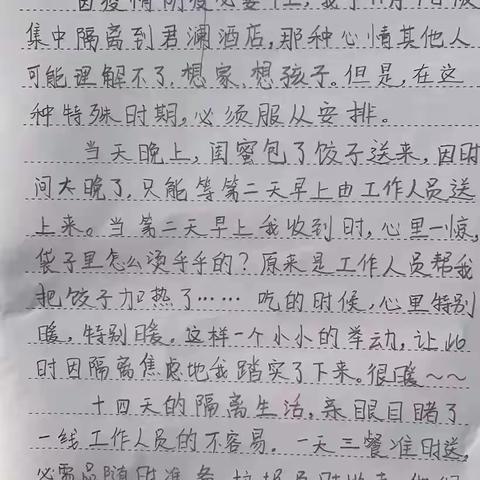 因疫情防疫必要性,我于11月1日被
集中隔离到君澜酒店,那种心情其他人
可能理解不了.想家.想孩子。但是,在这
种特殊时期,必须服从安排。
当天晚上,闺蜜包了饺子送来,因时
间太晚了,只能等第二天早上由工作人员送
上来。当第二天早上我收到时,心里一惊,
袋子里怎么烫乎乎的?原来是工作人员帮我
把饺子加热了……吃的时候,心里特别
暖,特别暖。这样一个小小的举动,让此
时因隔离焦虑地我踏实了下来。很暖~~
十四天的隔离生活,亲眼目睹了
一线工作人员的不容易.一天三餐准时送,
必需品随时准备,垃圾及时收走